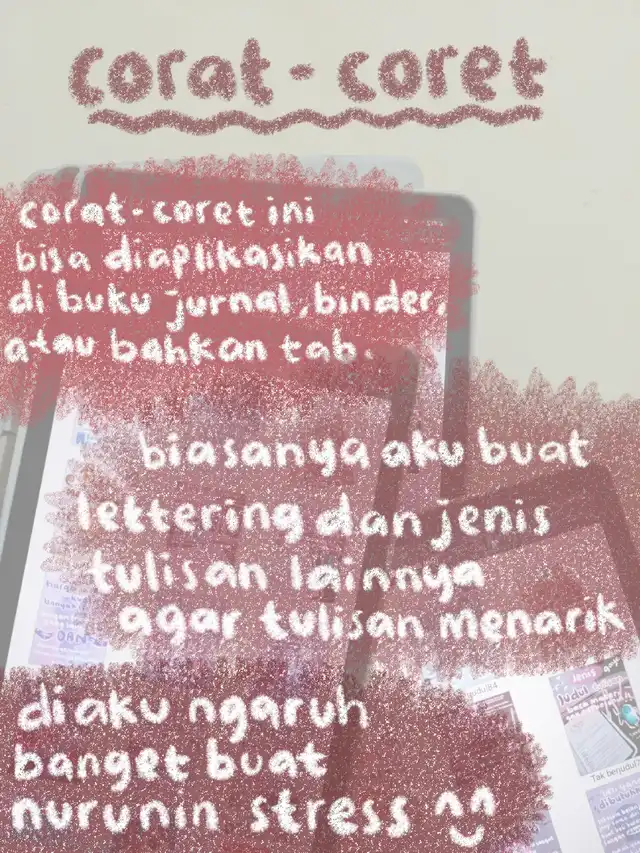 corat-coret
corat-coret ini
bisa diaplikasikan
di buku jurnal, binder,
atau bahkan tab.
biasanya aku buat
lettering dan jenis
tulisan lainnya
agar tulisan menarik
di aku ngaruh
banget buat
nurunin stress ^^
jenis
judul
Tak berjudul